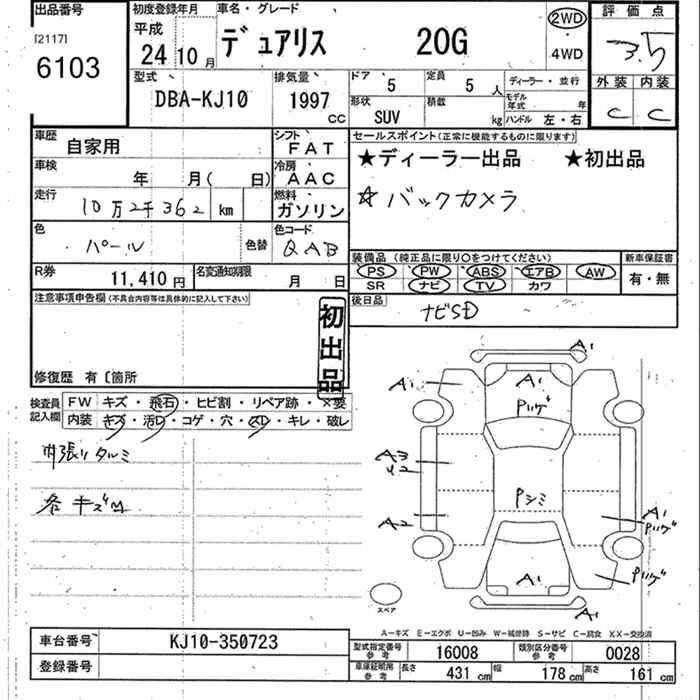 出品番号 初度登録年月 車名・グレード 評価点
[2117] 平成 2WD
6103 24 10 月 デュアリス 20G ・ 3.5
4WD
型式 排気量 ドア 定員 ディーラー・並行 外装 内装
DBA-KJ10 1997 5 5 人 モデル年式 年
CC 形状 SUV 積載 kg ハンドル 左・右 C C
車歴 自家用 シフト FAT セールスポイント(正常に機能するものに限ります)
車検 年 月( 日) 冷房 AAC ★ディーラー出品 ★初出品
走行 10万2千362 km 燃料 ガソリン ☆バックカメラ
色 パール 色替 色コード QAB
装備品 (純正品に限り○をつけてください) 新車保証書
PS PW ABS エアB AW 有・無
SR ナビ TV カワ
R券 11,410 円 名変通知期限 月 日
注意事項申告欄(不具合内容等は具体的に記入して下さい) 後日品 ナビSD
初出品
修復歴 有〔箇所
検査員記入欄 FW キズ・飛石・ヒビ割・リペア跡・×要
内装 キズ・汚D・コゲ・穴・スD・キレ・破レ
内張りタルミ
各キズ
A1
A1 A1
Pハゲ
A3
U2
Pシミ
A2 A1
Pハゲ
A1 Pハゲ
A1
スペア
A-キズ E-エクボ U-凹み W-補修跡 S-サビ C-腐食 XX-交換済
車台番号 KJ10-350723 型式指定番号 参考 16008 類別区分番号 参考 0028
登録番号 車庫証明用 参考 長さ 431 cm 幅 178 cm 高さ 161 cm